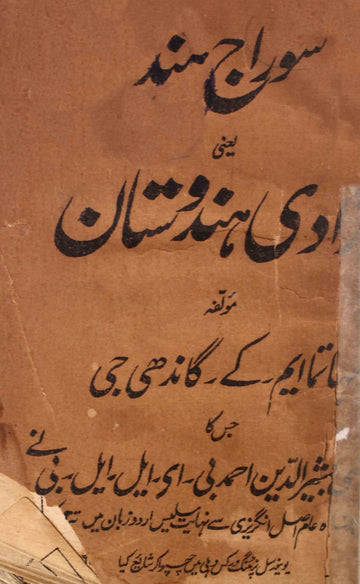 سوراج ہند
یعنی
ادی ہندوستان
مؤلفہ
ماتما ایم۔ کے۔ گاندھی جی
جس کا
بشیر الدین احمد بی۔ ای۔ ایل۔ ایل۔ بی نے
اصل انگریزی سے نہایت سلیس اردو زبان میں
یونیورسل پرنٹنگ میں چھپوا کر شائع کیا